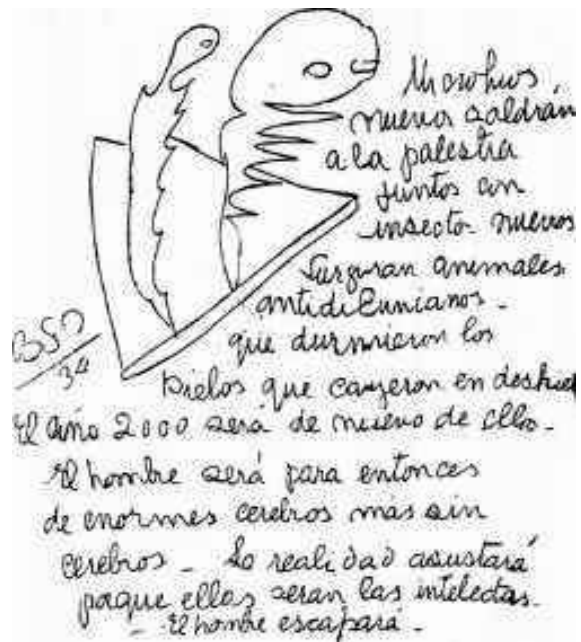 Microbios
nuevos saldran
a la palestra
juntos con
insecto- nuevos
Surguran animales
antidiluvianos -
que durmieron los
hielos que cayeron en deshiel
El año 2000 será de nuevo de ellos -
El hombre será para entonces
de enormes cerebros más sin
cerebros - La realidad asustará
poque ellos seran las intelectas.
- El hombre escapará -
BSP
34